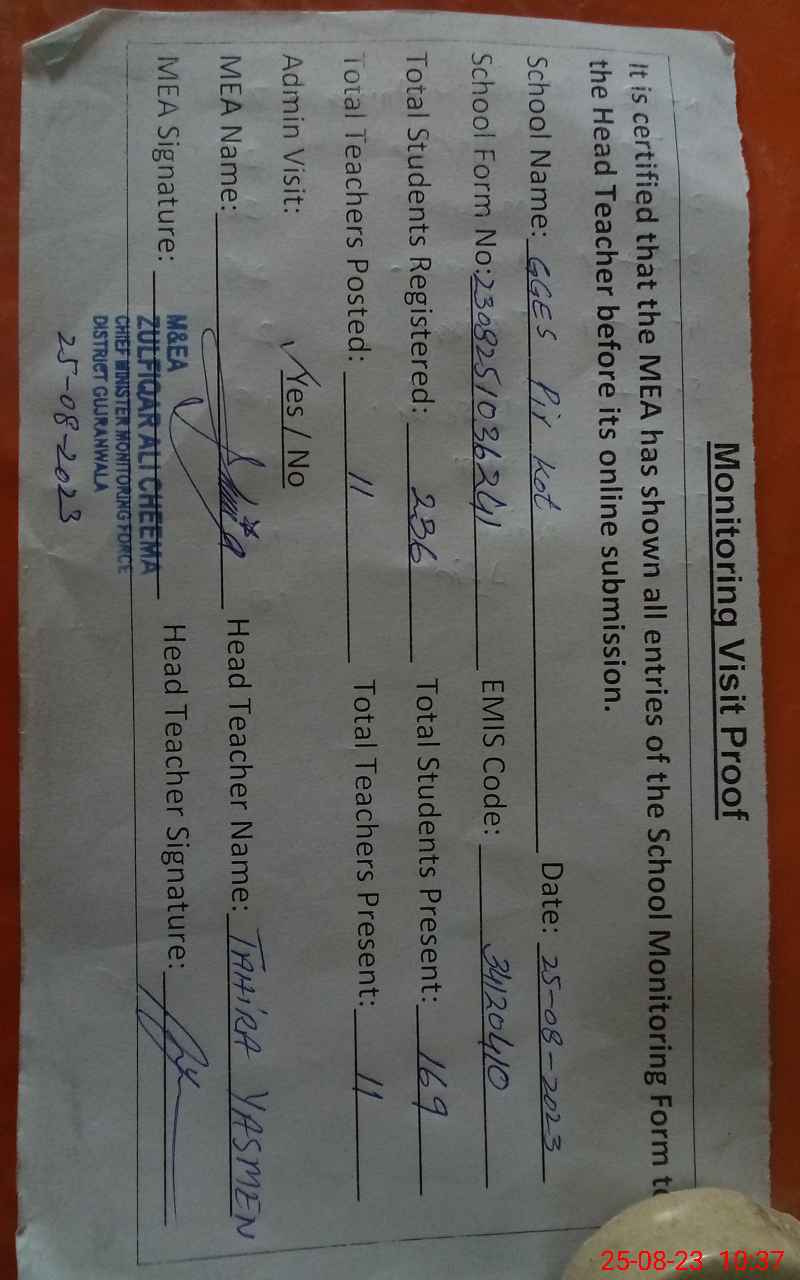 Monitoring Visit Proof
It is certified that the MEA has shown all entries of the School Monitoring Form to
the Head Teacher before its online submission.
School Name: GGES Pir Kot Date: 25-08-2023
School Form No: 2308251036241 EMIS Code: 34120410
Total Students Registered: 236 Total Students Present: 169
Total Teachers Posted: 11 Total Teachers Present: 11
Admin Visit: ✓Yes / No
MEA Name: Head Teacher Name: TAHIRA YASMEN
MEA Signature: Head Teacher Signature:
M&EA
ZULFIQAR ALI CHEEMA
CHIEF MINISTER MONITORING FORCE
DISTRICT GUJRANWALA
25-08-2023
25-08-23 10:37